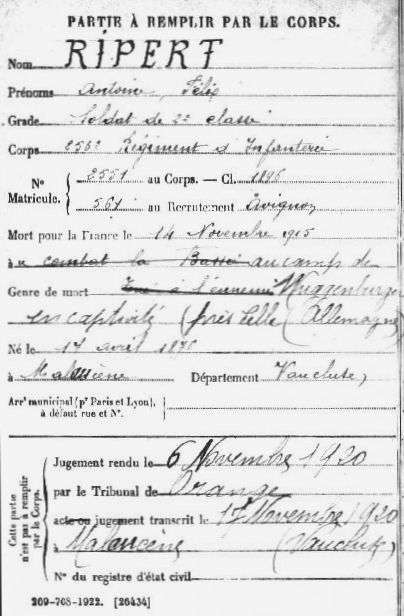 PARTIE À REMPLIR PAR LE CORPS.
Nom RIPERT
Prénoms Antoine, Félix
Grade Soldat de 2e classe
Corps 256e Régiment d'Infanterie
N° Matricule. { 2551 au Corps. — Cl. 1896
561 au Recrutement Avignon
Mort pour la France le 14 Novembre 1915
à u combat la Bassée au camp de
Genre de mort Tué à l'ennemi
en captivité (près Celle (Allemagne)
Né le 14 avril 1876
à Malaucène Département Vaucluse,
Arrt municipal (pr Paris et Lyon),
à défaut rue et N°.
Cette partie n'est pas à remplir par le Corps.
Jugement rendu le 6 Novembre 1920
par le Tribunal de Orange
acte ou jugement transcrit le 17 Novembre 1920
à Malaucène (Vaucluse)
N° du registre d'état civil
209-708-1922. [26434]